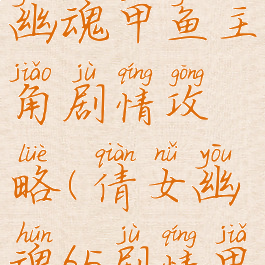 幽魂甲鱼主
jiǎo jù qíng gōng
角剧情攻
lüè qiàn nǚ yōu
略(倩女幽
hún jù qíng jiǎ
魂65剧情甲